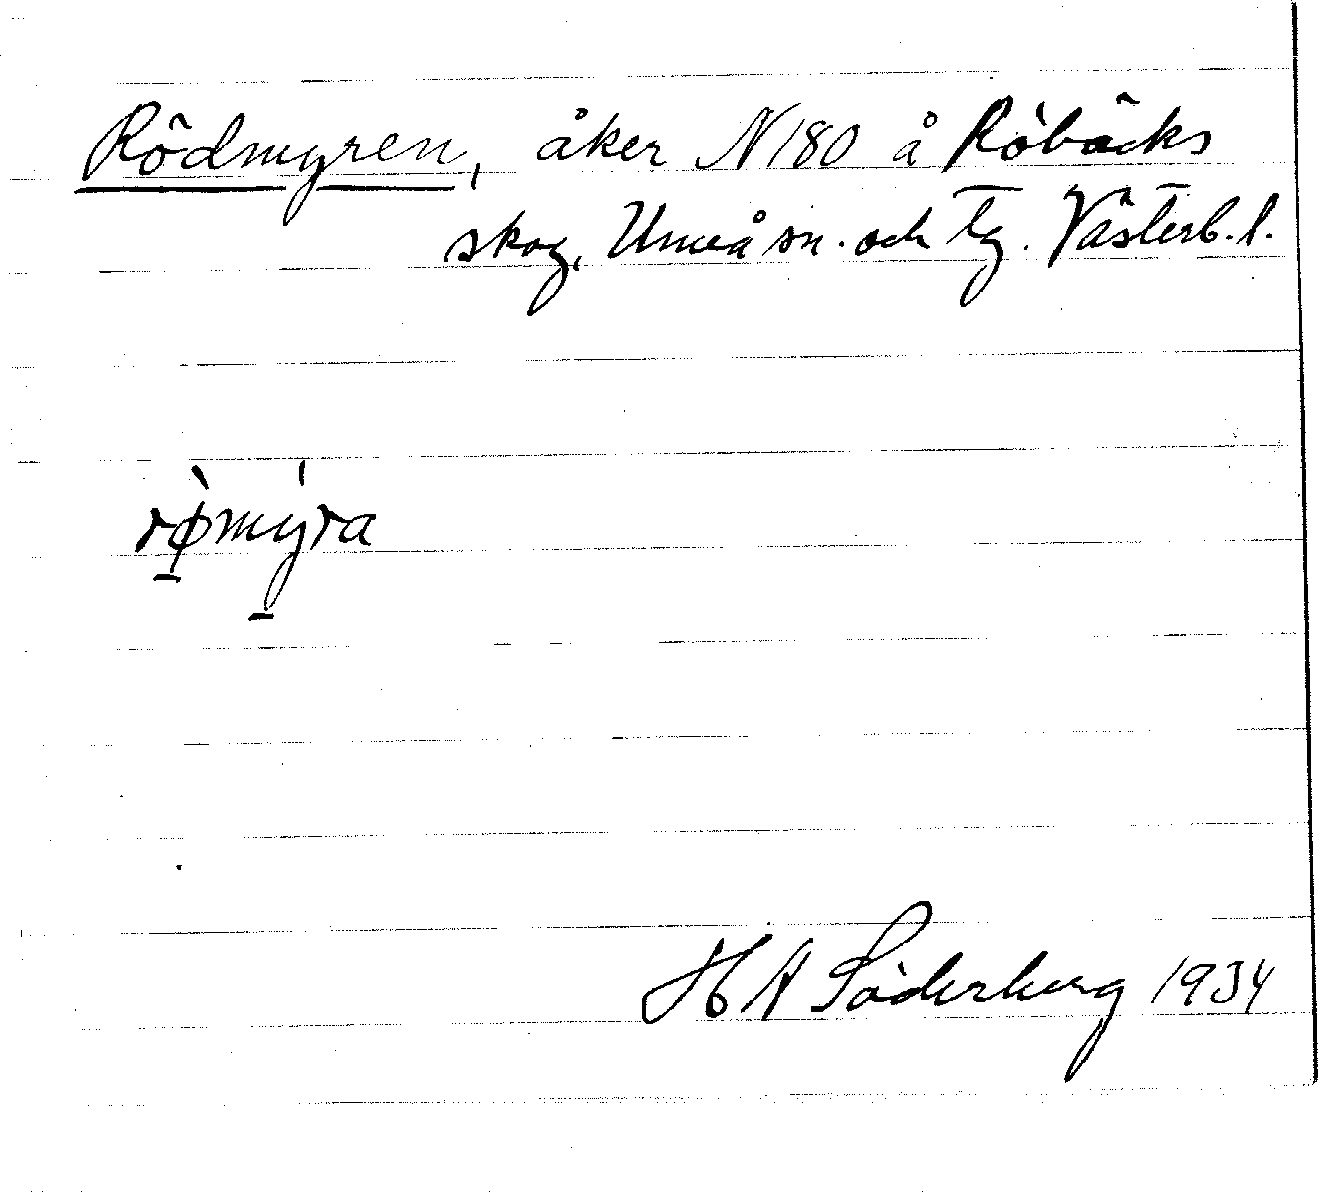 Rödmyren, åker N180 å Röbäcks
skog, Umeå sn. och tg. Västerb. l.
rø̀mýra
H A Söderberg 1934